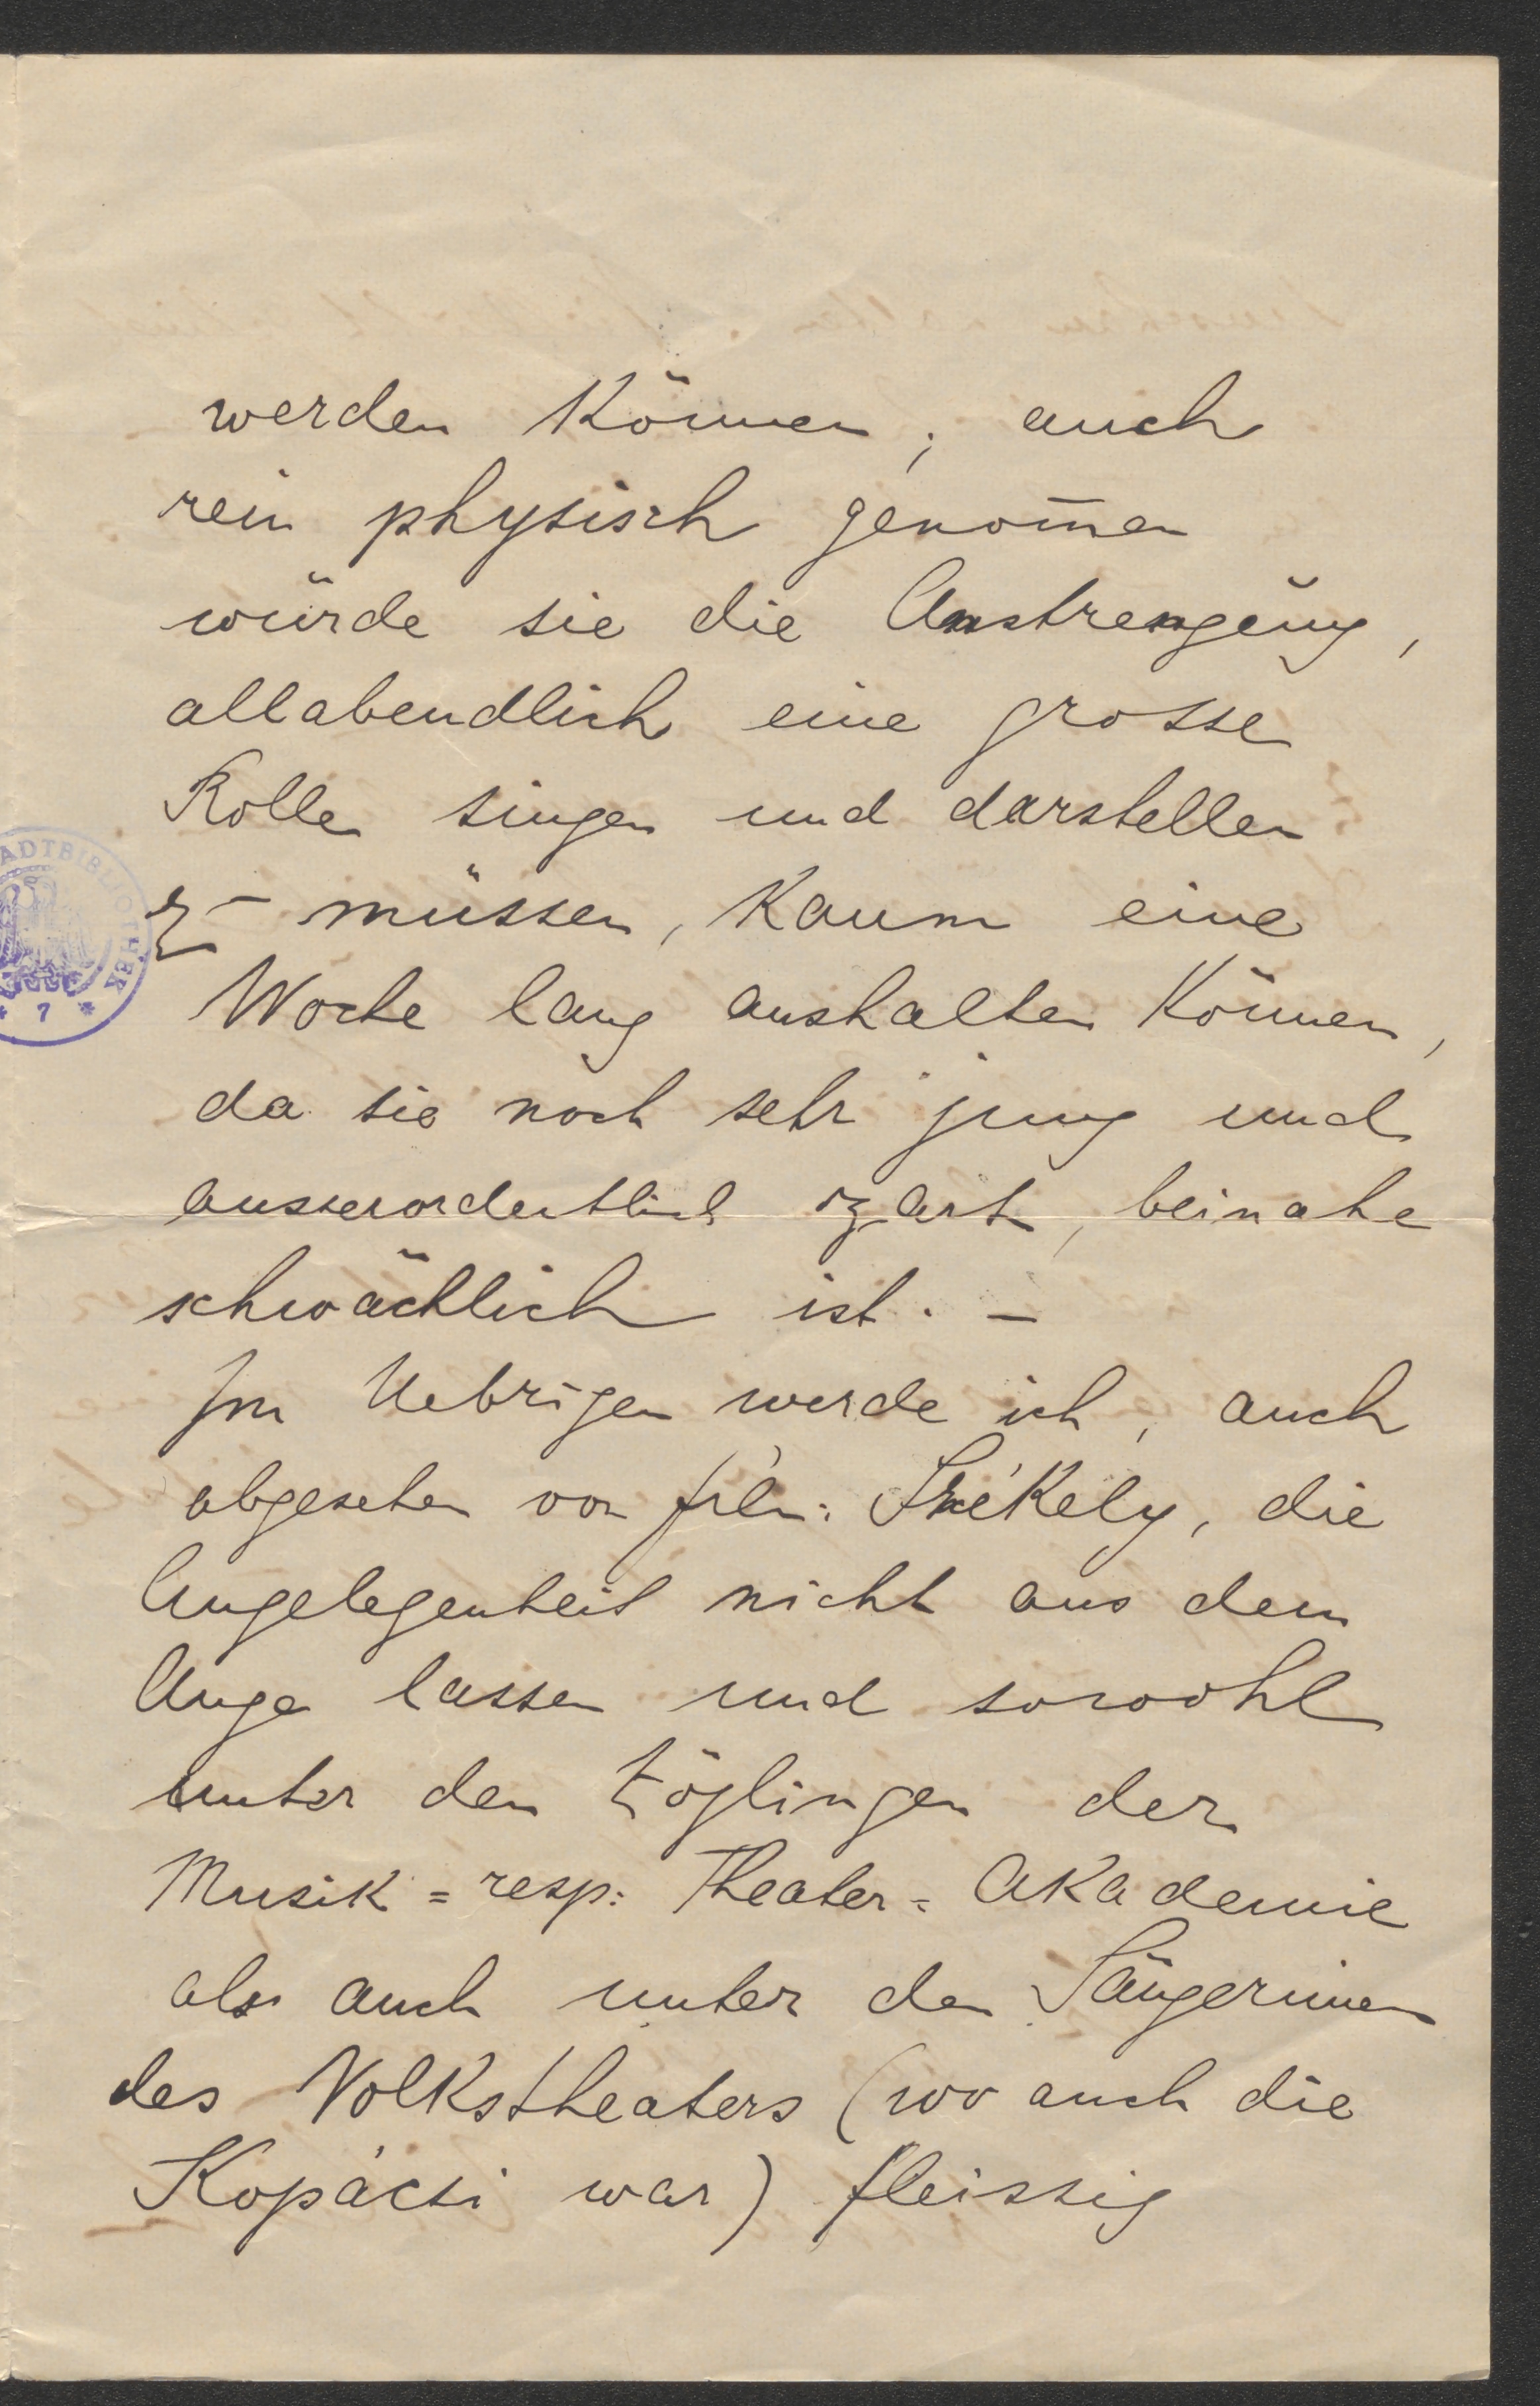 werden können, auch
rein physisch genom̄en
würde sie die Anstrengung,
allabendlich eine grosse
Rolle singen und darstellen
zu müssen, kaum eine
Woche lang aushalten können,
da sie noch sehr jung und
ausserordentlich zart, beinahe
schwächlich ist. –
Im Uebrigen werde ich, auch
abgesehen von Frln: Székely, die
Angelegenheit nicht aus dem
Auge lassen und sowohl
unter den Zöglingen der
Musik = resp: Theater = Akademie
als auch unter den Sängerinnen
des Volkstheaters (wo auch die
Kopácsi war) fleissig
ADTBIBLIOTHEK
* 7 *